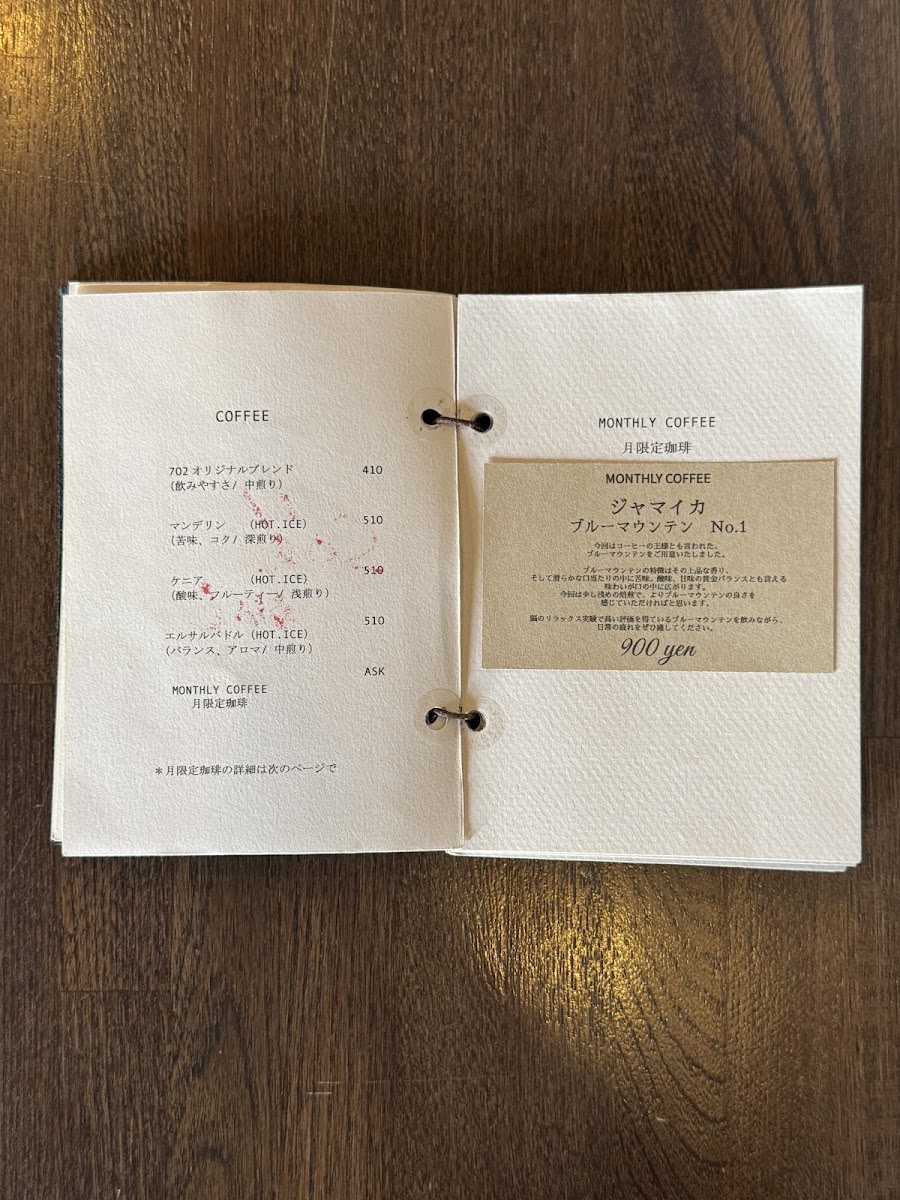 COFFEE
702 オリジナルブレンド 410
(飲みやすさ/ 中煎り)
マンデリン (HOT.ICE) 510
(苦味、コク/ 深煎り)
ケニア (HOT.ICE) 510
(酸味、フルーティー/ 浅煎り)
エルサルバドル (HOT.ICE) 510
(バランス、アロマ/ 中煎り)
ASK
MONTHLY COFFEE
月限定珈琲
＊月限定珈琲の詳細は次のページで
MONTHLY COFFEE
月限定珈琲
MONTHLY COFFEE
ジャマイカ
ブルーマウンテン No.1
今回はコーヒーの王様とも言われた、
ブルーマウンテンをご用意いたしました。
ブルーマウンテンの特徴はその上品な香り、
そして滑らかな口当たりの中に苦味、酸味、甘味の黄金バランスとも言える
味わいが口の中に広がります。
今回は少し浅めの焙煎で、よりブルーマウンテンの良さを
感じていただければと思います。
脳のリラックス実験で高い評価を得ているブルーマウンテンを飲みながら、
日常の疲れをぜひ癒してください。
900 yen